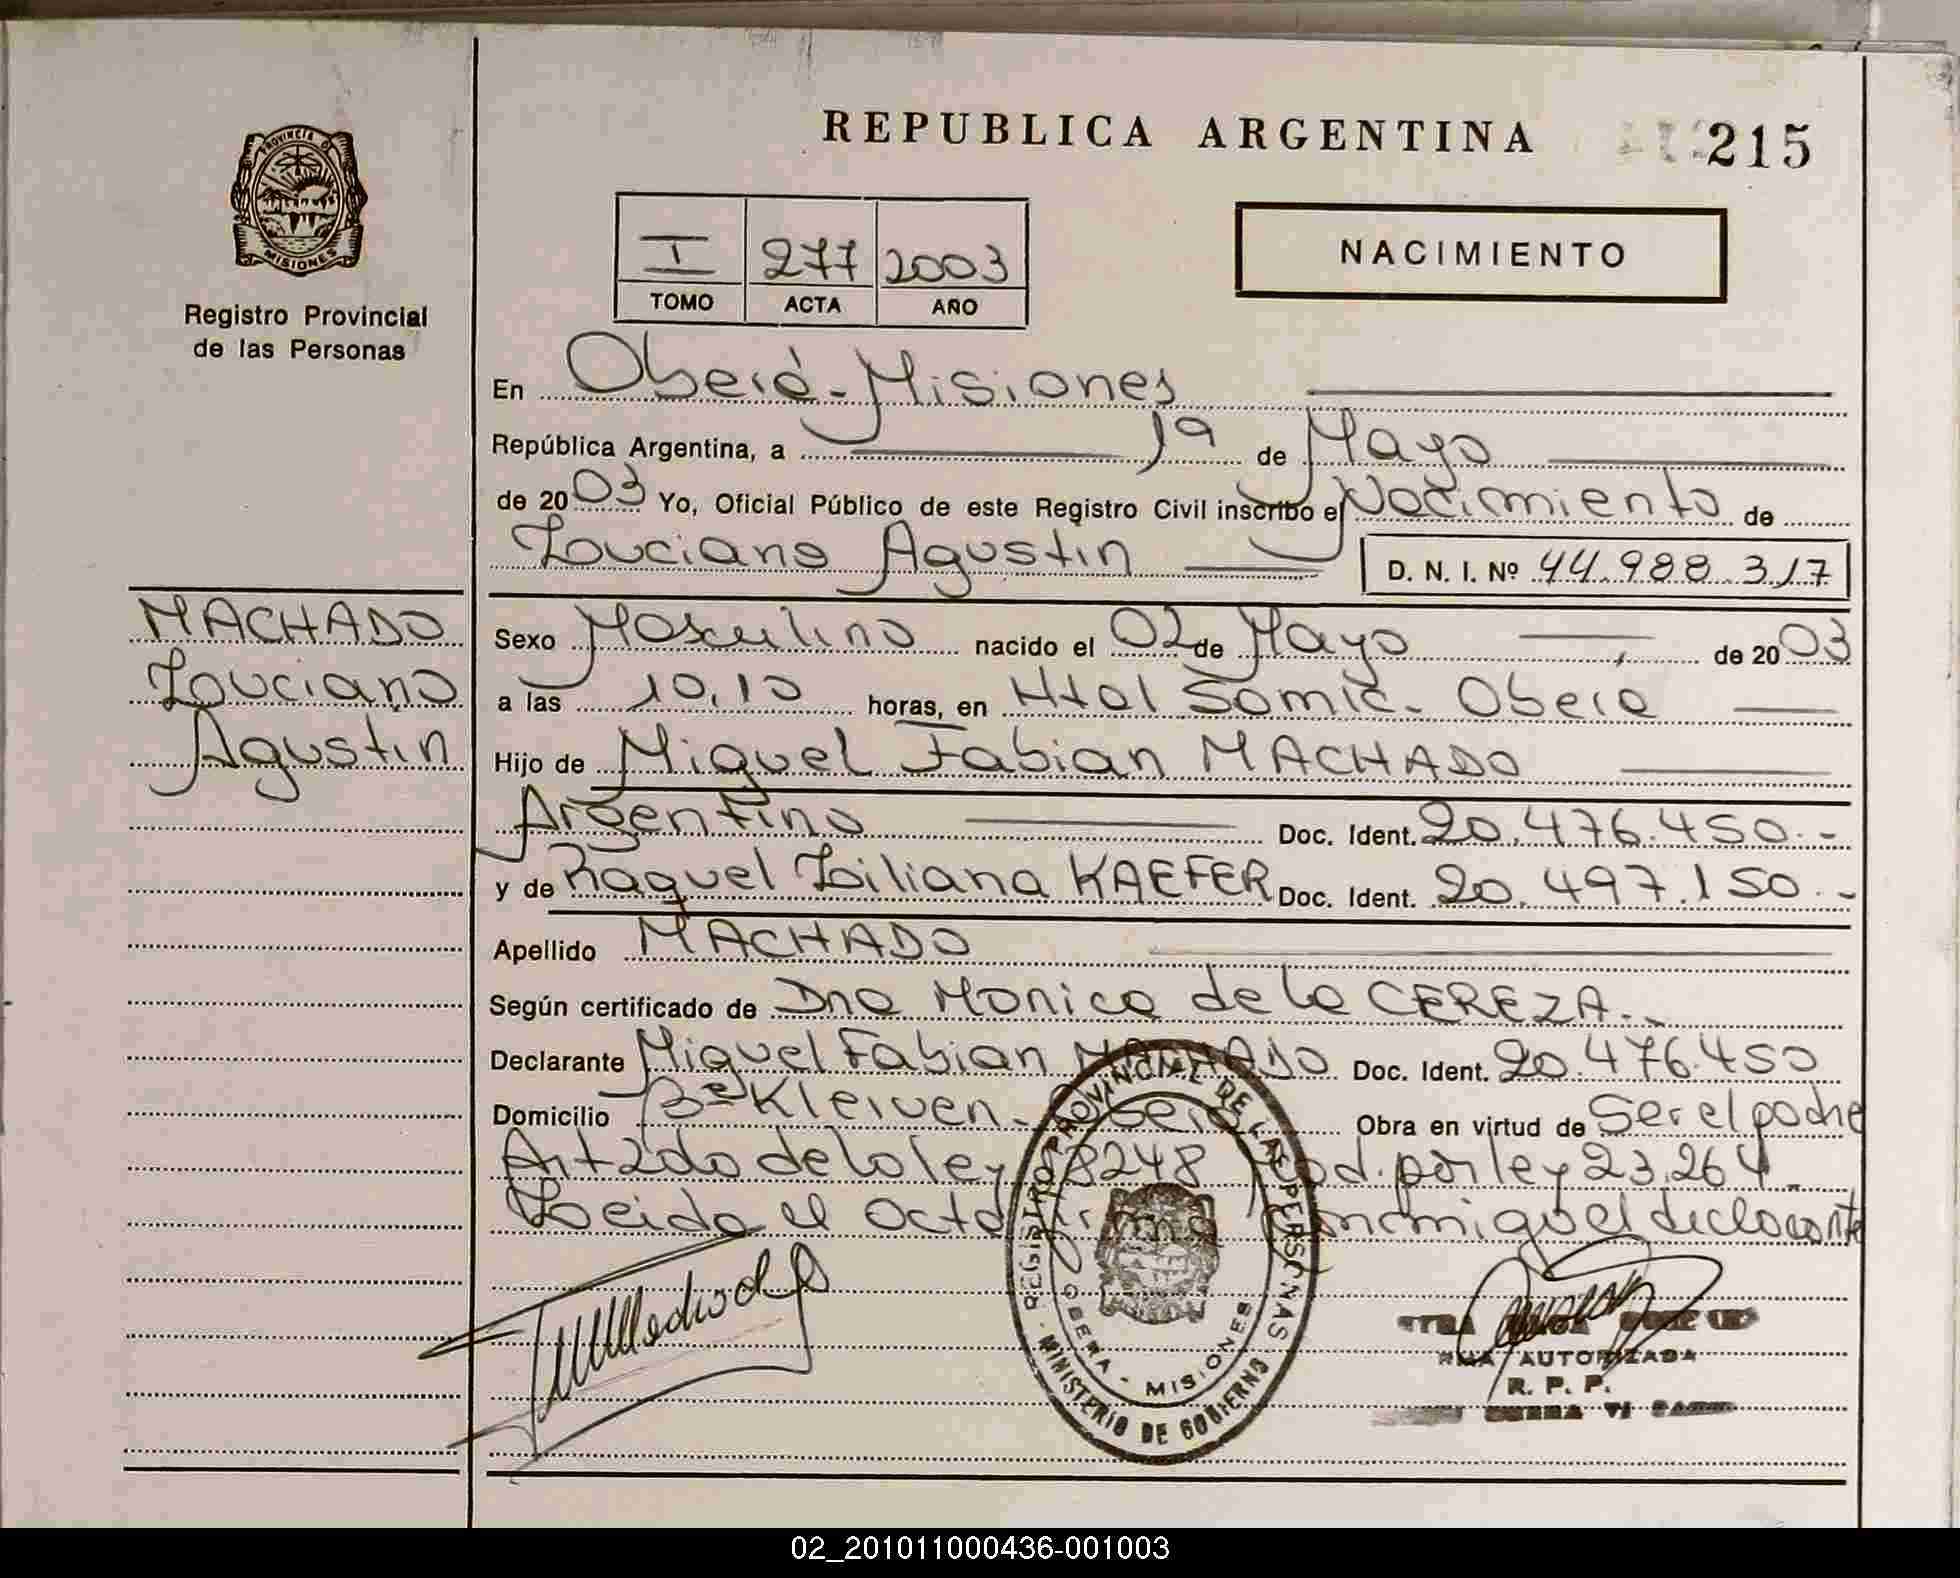 REPUBLICA ARGENTINA
215
PROVINCIA DE
MISIONES
Registro Provincial
de las Personas
I 277 2003
TOMO ACTA AÑO
NACIMIENTO
En Oberá - Misiones
República Argentina, a 19 de Mayo
de 2003 Yo, Oficial Público de este Registro Civil inscribo el Nacimiento de
Louciano Agustin D. N. I. Nº 44.988.317
MACHADO
Louciano
Agustin
Sexo Masculino nacido el 02 de Mayo de 2003
a las 10,10 horas, en Htal Samic - Oberá
Hijo de Miguel Fabian MACHADO
Argentino Doc. Ident. 20.476.450.-
y de Raquel Liliana KAEFER Doc. Ident. 20.497.150.-
Apellido MACHADO
Según certificado de Dra Monica de la CEREZA.-
Declarante Miguel Fabian MACHADO Doc. Ident. 20.476.450
Domicilio Bº Kleiven - Oberá Obra en virtud de Ser el padre
Art 2do de la ley 18248 Mod. por ley 23.264.
Leida el acta firma conmigo el declarante
REGISTRO PROVINCIAL DE LAS PERSONAS
MINISTERIO DE GOBIERNO
OBERA - MISIONES
AUTORIZADA
R. P. P.
02_201011000436-001003